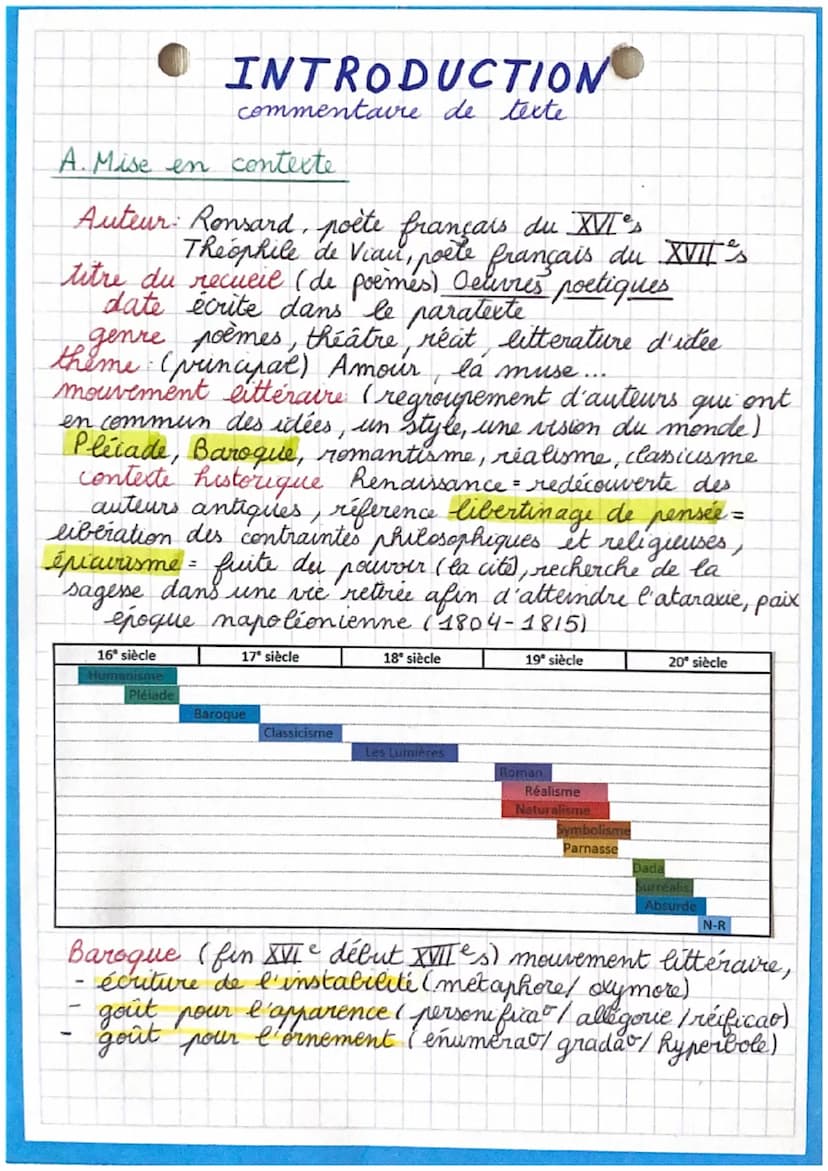 INTRODUCTION
commentaire de texte
A. Mise en contexte
Auteur: Ronsard, poète français du XVIᵉs
Théophile de Viau, poète français du XVIIᵉs
titre du recueil (de poèmes) Oeuvres poetiques
date écrite dans le paratexte
genre poèmes, théâtre, récit, litterature d'idée
thème: (principal) Amour, la muse...
mouvement littéraire (regroupement d'auteurs qui ont
en commun des idées, un style, une vision du monde)
Pléiade, Baroque, romantisme, réalisme, classicisme
contexte historique Renaissance = redécouverte des
auteurs antiques, réference libertinage de pensée =
libération des contraintes philosophiques et religieuses,
épicurisme = fuite du pouvoir (la cité), recherche de la
sagesse dans une vie retirée afin d'atteindre l'ataraxie, paix
époque napoléonienne (1804-1815)
16ᵉ siècle 17ᵉ siècle 18ᵉ siècle 19ᵉ siècle 20ᵉ siècle
Humanisme
Pléiade
Baroque
Classicisme
Les Lumières
Roman
Réalisme
Naturalisme
Symbolisme
Parnasse
Dada
Surréalis
Absurde
N-R
Baroque (fin XVIᵉ début XVIIᵉs) mouvement littéraire,
- écriture de l'instabilité (métaphore/ oxymore)
- goût pour l'apparence (personnificaᵒ/ allégorie/réificaᵒ)
- goût pour l'ornement (énuméraᵒ/ gradaᵒ/ hyperbole)